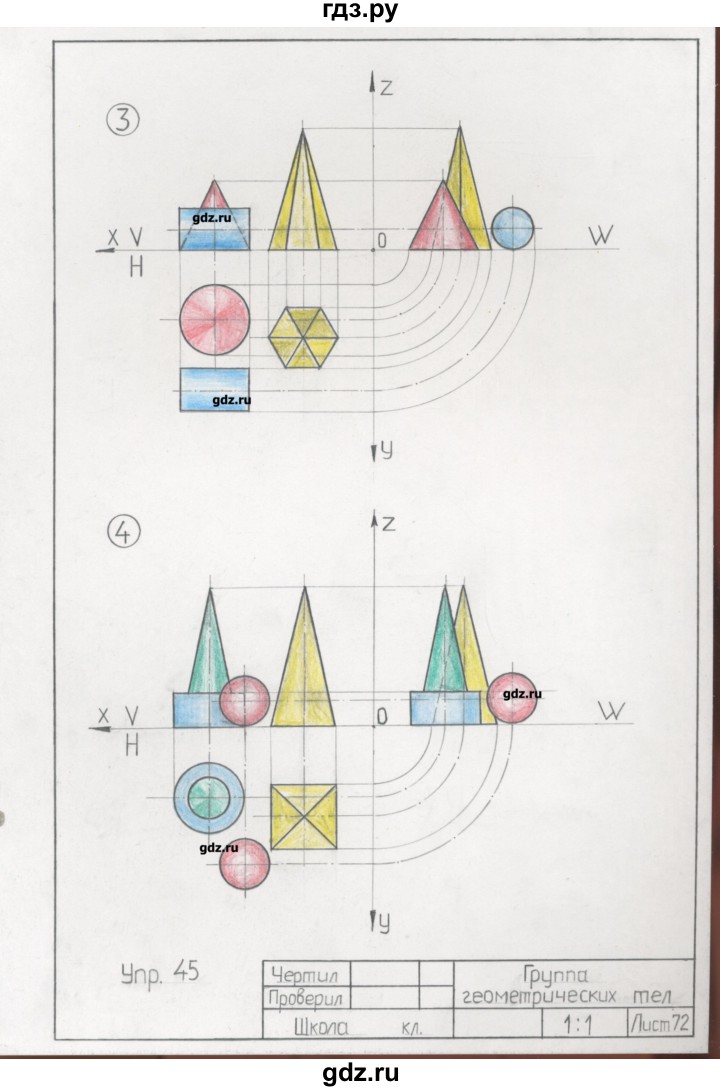 гдз.ру
3
Z
gdz.ru
X V
O
W
H
gdz.ru
y
4
Z
gdz.ru
X V
O
W
H
gdz.ru
y
Упр. 45
Чертил
Группа
Проверил
геометрических тел
Школа кл.
1:1
Лист 72
gdz.ru